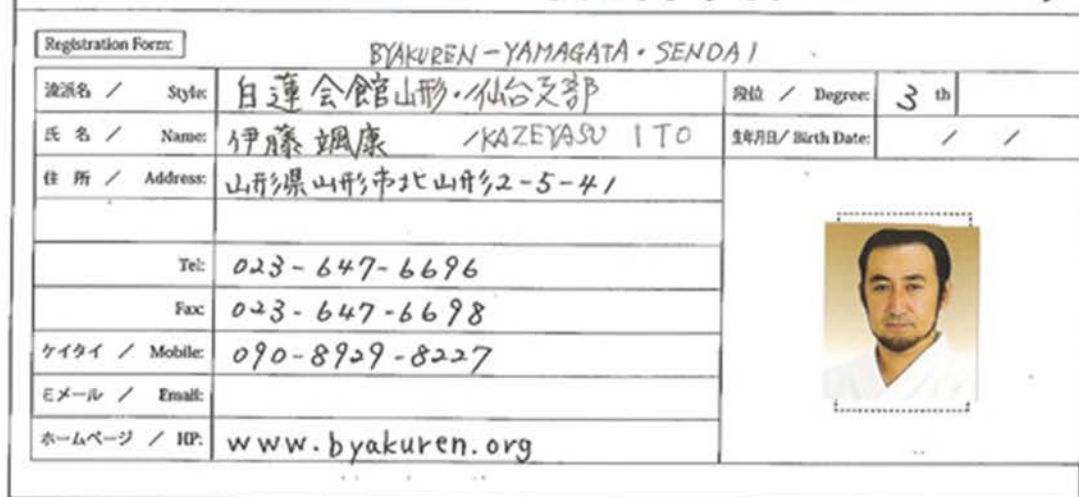 Registration Form:
BYAKUREN-YAMAGATA・SENDAI
流派名 / Style: 白蓮会館山形・仙台支部
段位 / Degree: 3 th
氏 名 / Name: 伊藤 颯康 /KAZEYASU ITO
生年月日/ Birth Date: / /
住 所 / Address: 山形県山形市北山形2-5-41
Tel: 023-647-6696
Fax: 023-647-6698
ケイタイ / Mobile: 090-8929-8227
Eメール / Email:
ホームページ / HP: www.byakuren.org